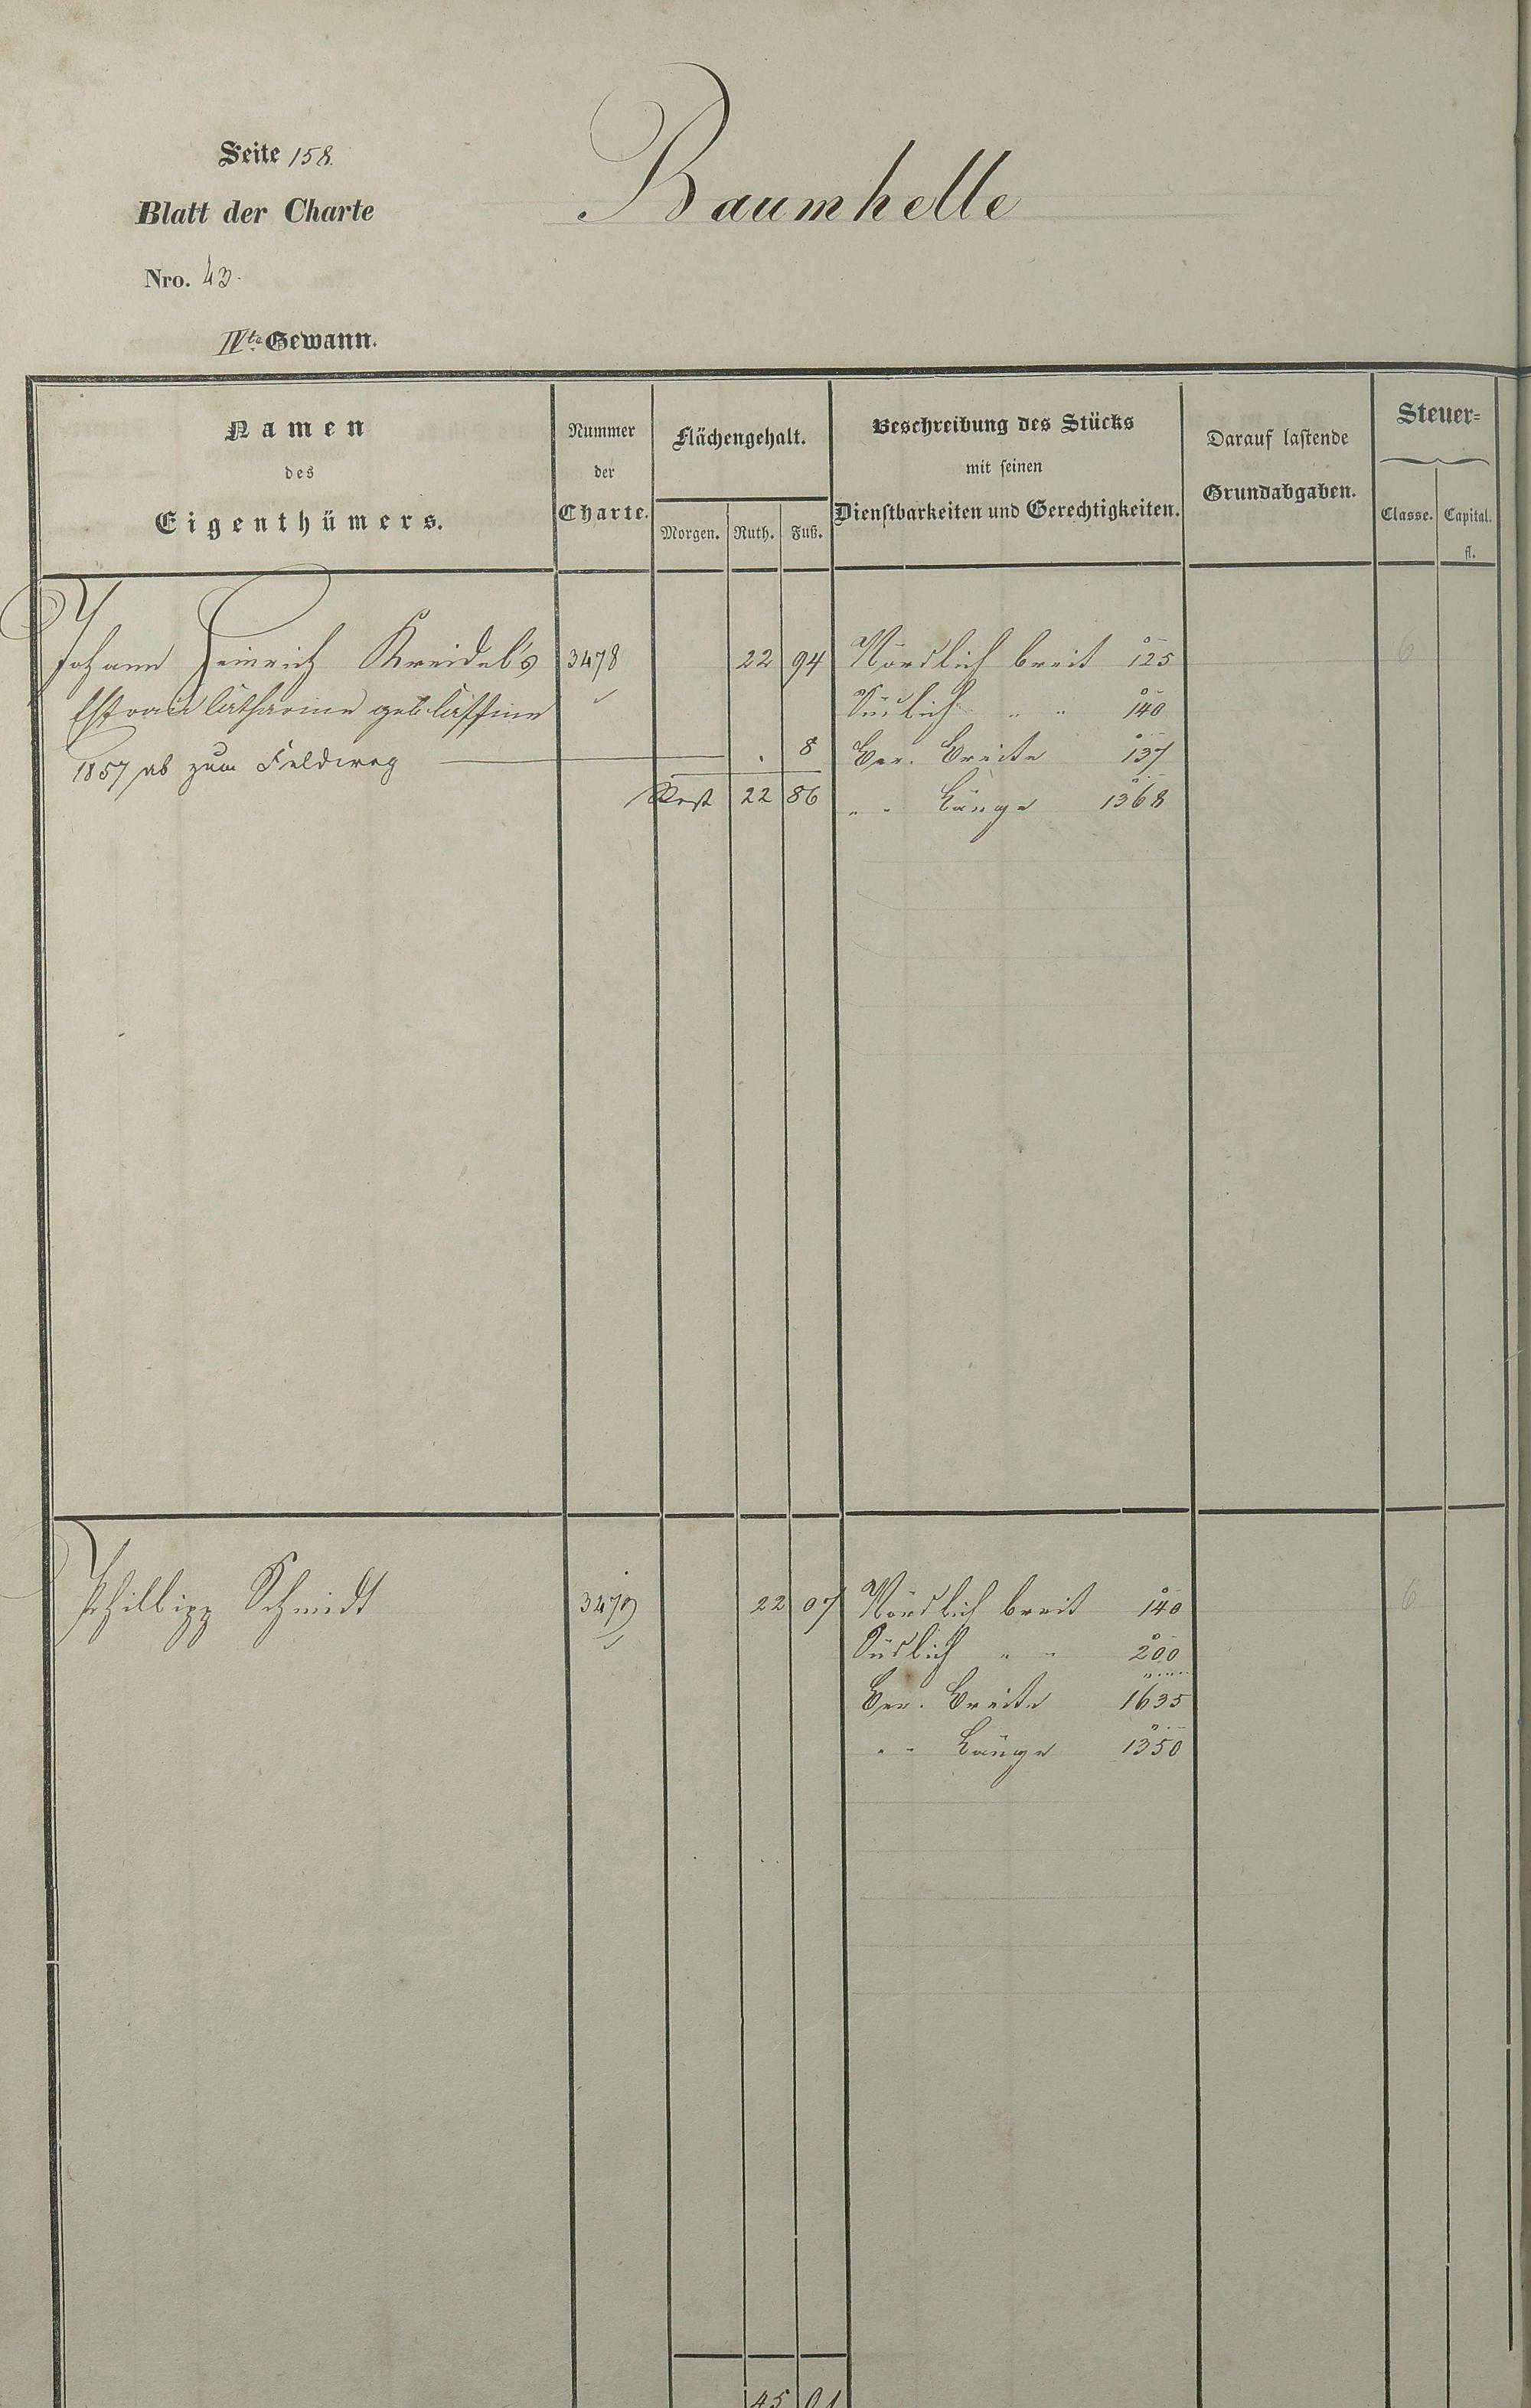 Seite 158.
Blatt der Charte
Baumhelle
Nro. 43.
IVte Gewann.
Namen
des
Eigenthümers.
Nummer
der
Charte.
Flächengehalt.
Morgen. Ruth. Fuß.
Beschreibung des Stücks
mit seinen
Dienstbarkeiten und Gerechtigkeiten.
Darauf lastende
Grundabgaben.
Steuer-
Classe. Capital.
fl.
Johann Heinrich Kreidel's 3478 22 94 Nördlich breit 125 6
Ehefrau Catharine geb. Südlich " " 140
1857 ab zum Feldweg . 8 Ver. Breite 137
Rest 22 86 " " Länge 1368
Phillipp Schmidt 3479 22 07 Nördlich breit 140 6
Südlich " " 200
Ver. Breite 1635
" " Länge 1350
45 01